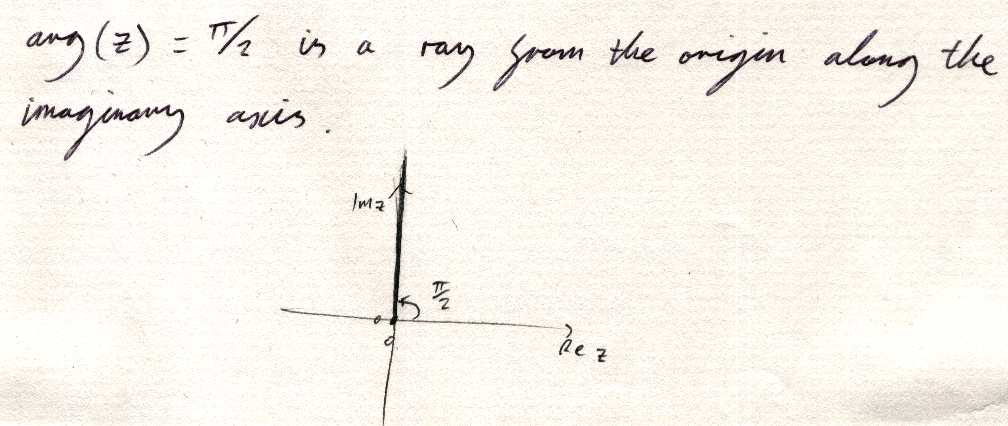 arg(z) = π/2 is a ray from the origin along the
imaginary axis.
Im z
π/2
0
0
Re z